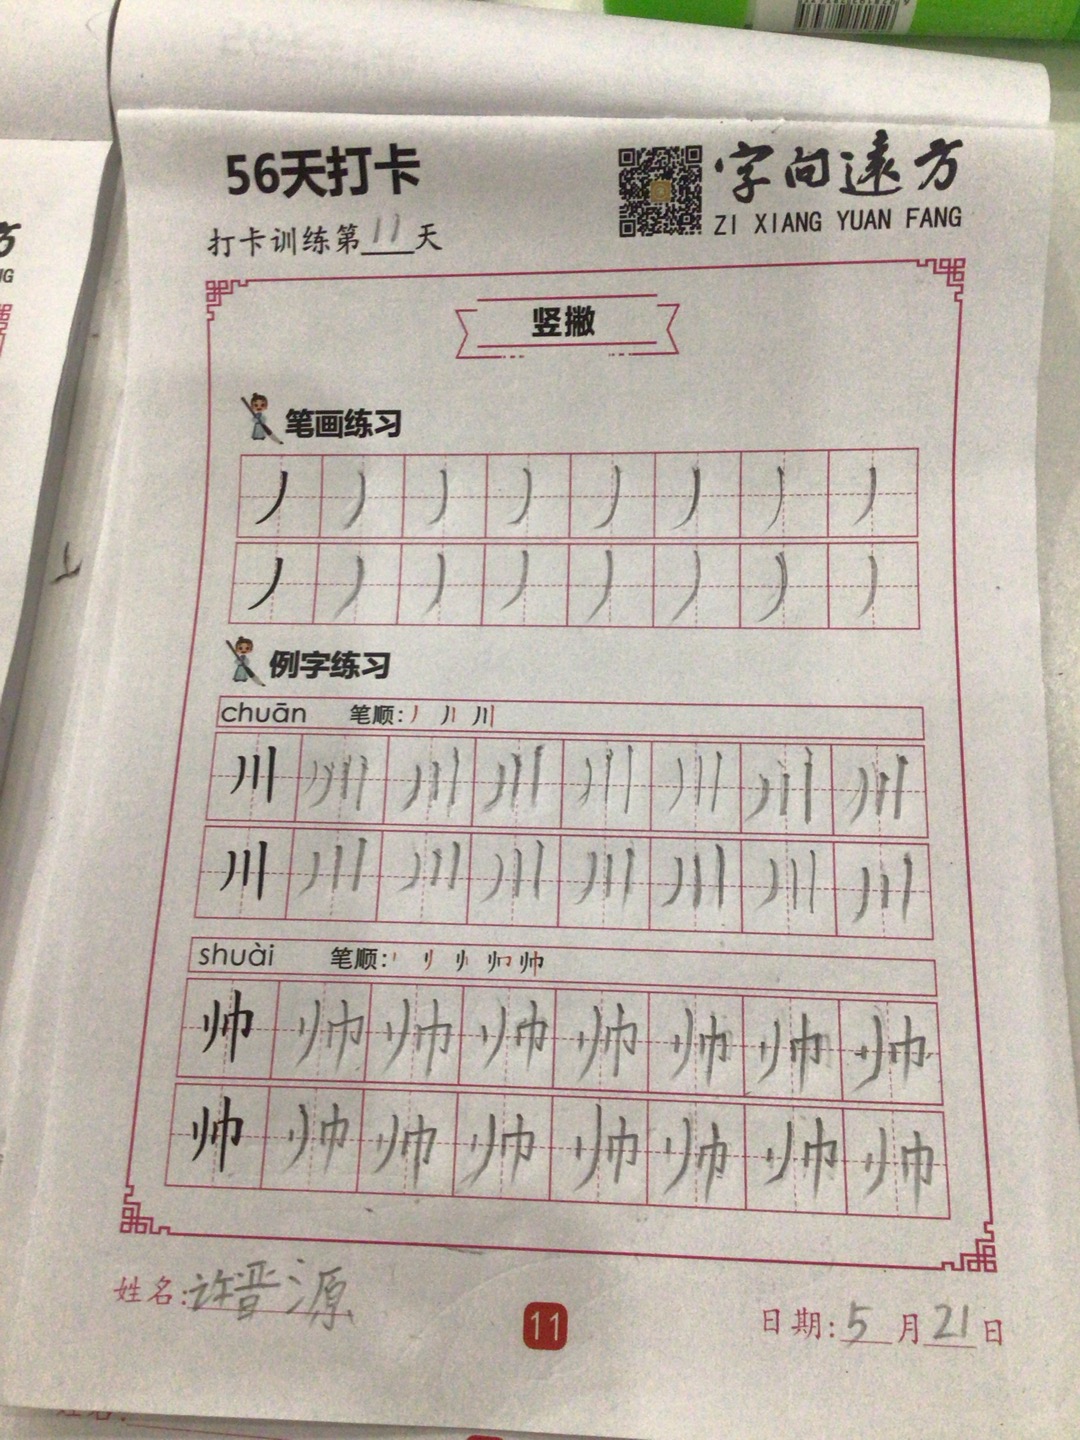 56天打卡
字向遠方
ZI XIANG YUAN FANG
打卡训练第11天
竖撇
笔画练习
丿 丿 丿 丿 丿 丿 丿 丿
丿 丿 丿 丿 丿 丿 丿 丿
例字练习
chuān 笔顺: 丿 丿丨 川
川 川 川 川 川 川 川 川
川 川 川 川 川 川 川 川
shuài 笔顺: 帅
帅 帅 帅 帅 帅 帅 帅 帅
帅 帅 帅 帅 帅 帅 帅 帅
姓名:许晋源
11
日期:5月21日